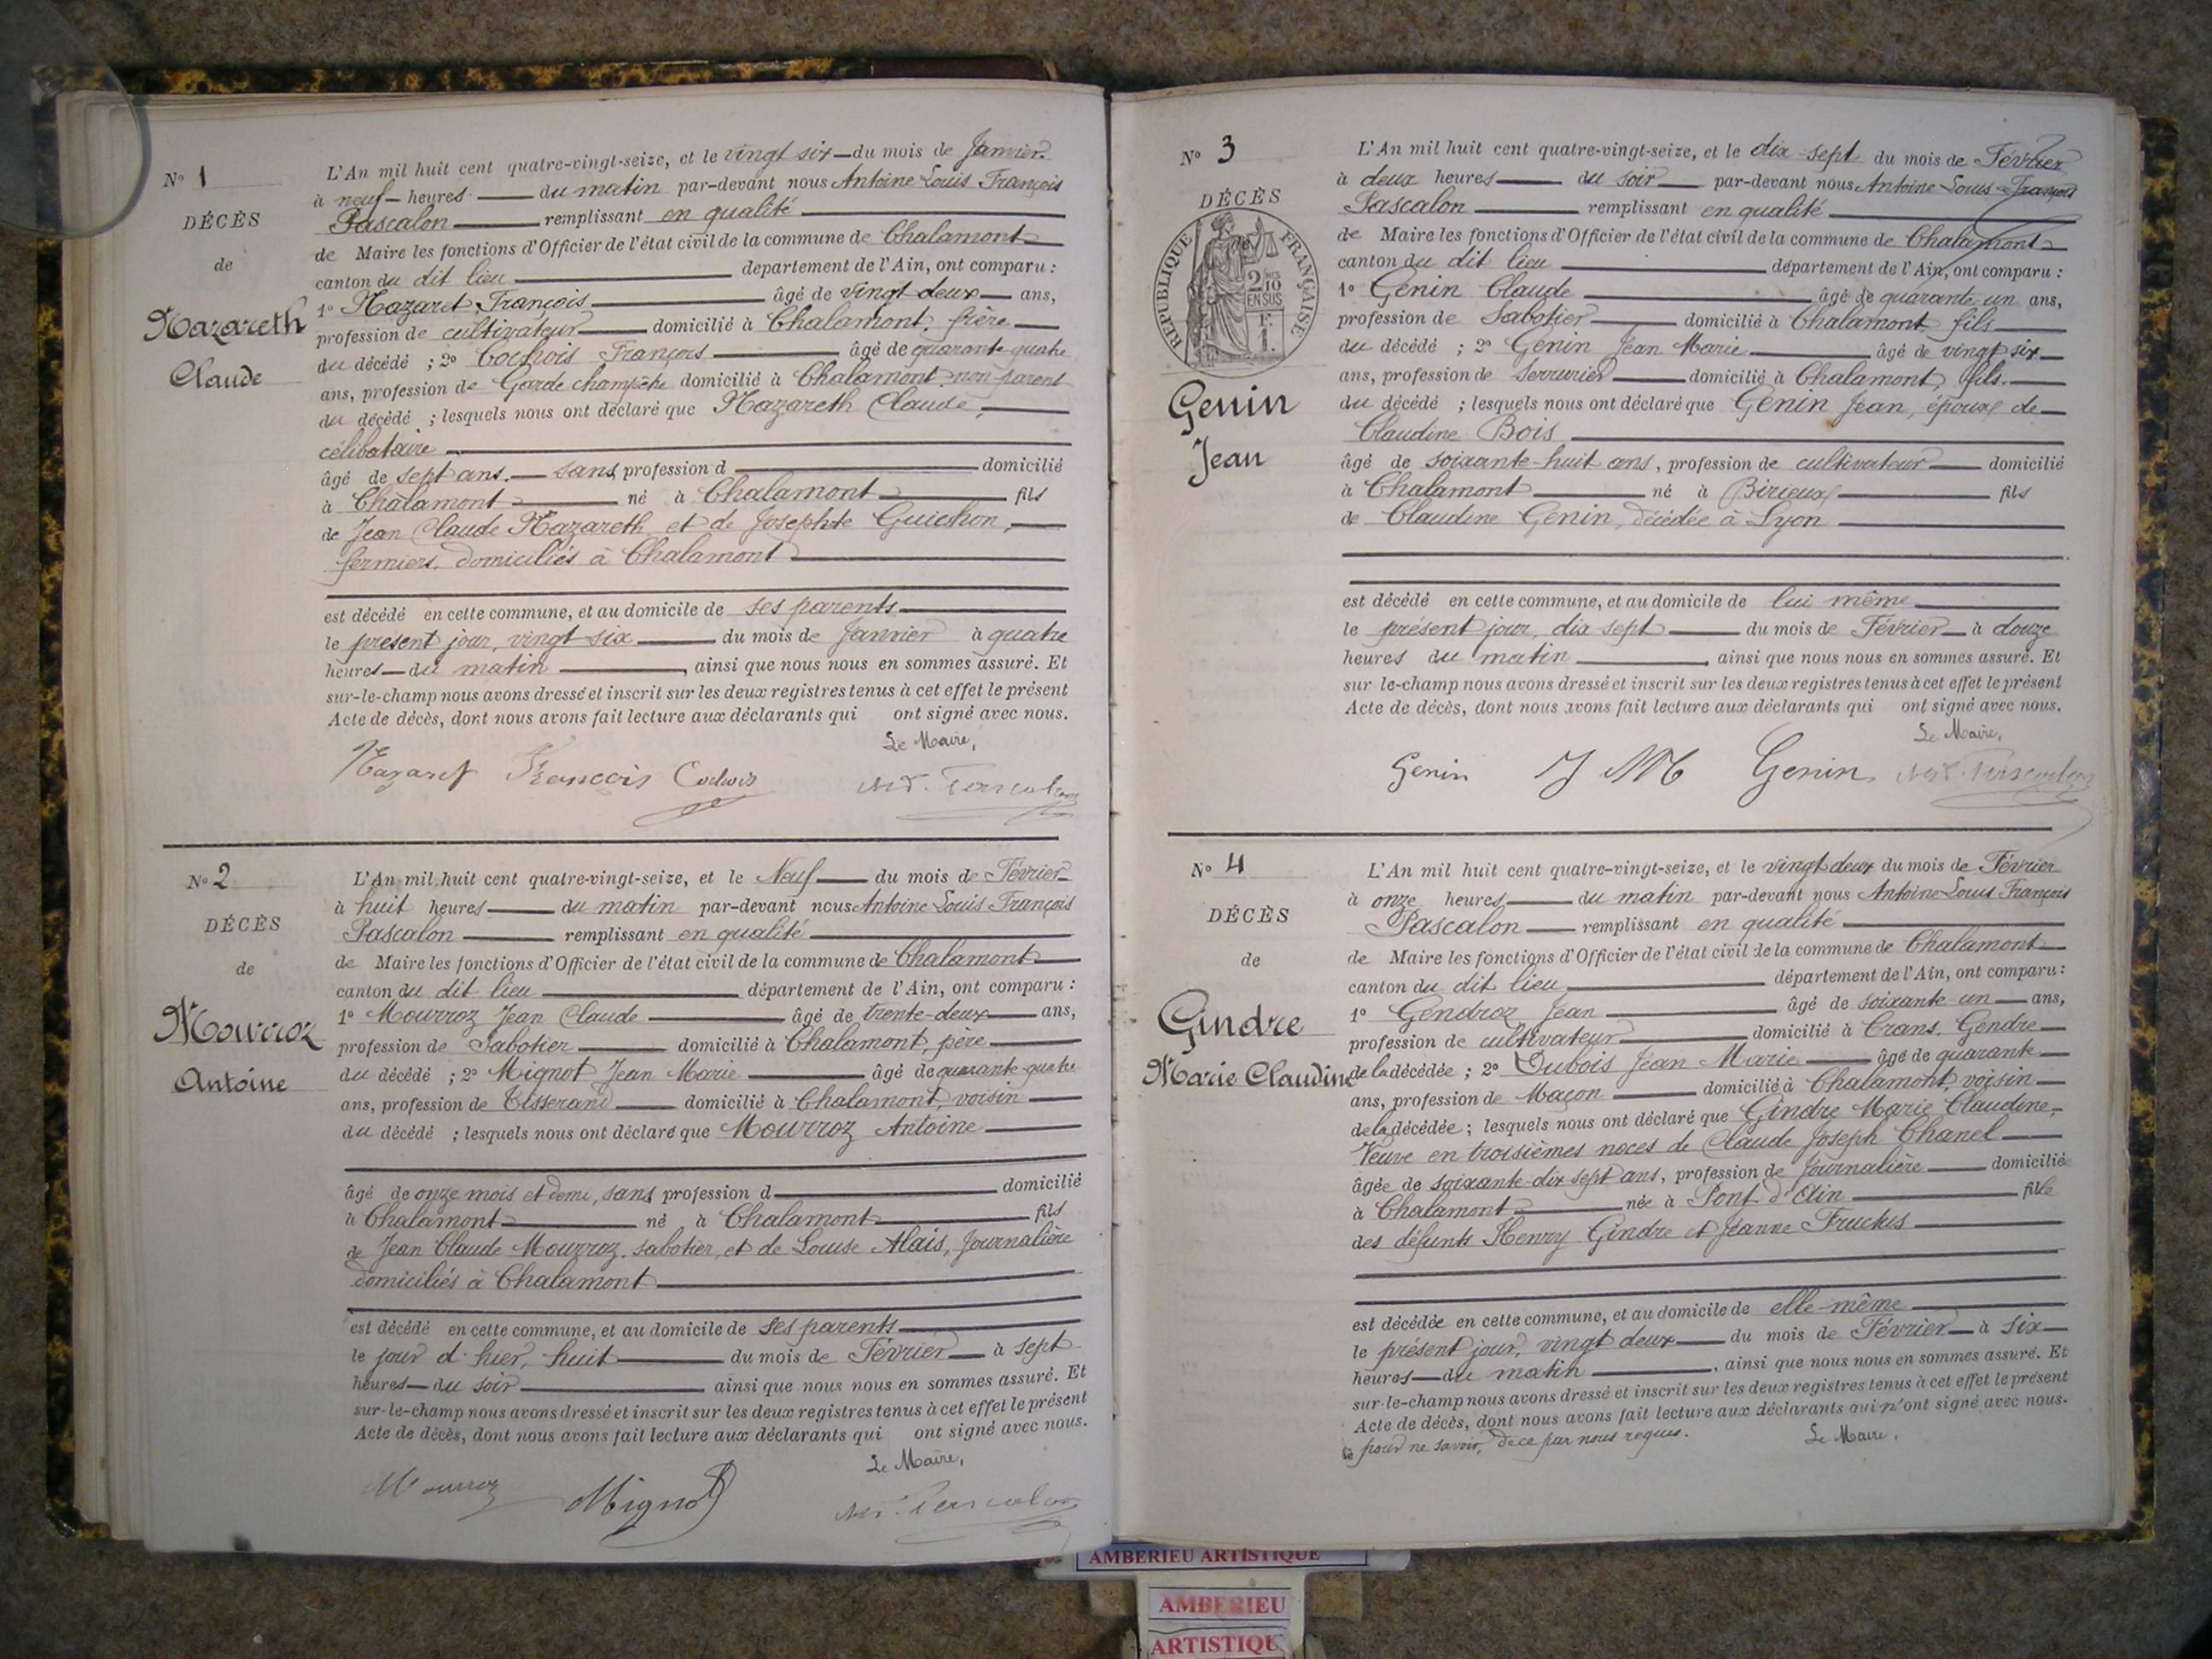 No 1
DÉCÈS
de
Nazareth
Claude
L'An mil huit cent quatre-vingt-seize, et le vingt six du mois de Janvier
à neuf heures du matin par-devant nous Antoine Louis François
Pascalon remplissant en qualité
de Maire les fonctions d'Officier de l'état civil de la commune de Chalamont
canton du dit lieu département de l'Ain, ont comparu :
1o Nazaret François âgé de vingt deux ans,
profession de cultivateur domicilié à Chalamont, frère
du décédé ; 2o Cochois François âgé de quarante quatre
ans, profession de Garde champêtre domicilié à Chalamont non parent
du décédé ; lesquels nous ont déclaré que Nazareth Claude,
célibataire
âgé de sept ans. sans profession d domicilié
à Chalamont né à Chalamont fils
de Jean Claude Nazareth et de Josephte Guichon,
fermiers, domiciliés à Chalamont
est décédé en cette commune, et au domicile de ses parents
le présent jour, vingt six du mois de Janvier à quatre
heures du matin, ainsi que nous nous en sommes assuré. Et
sur-le-champ nous avons dressé et inscrit sur les deux registres tenus à cet effet le présent
Acte de décès, dont nous avons fait lecture aux déclarants qui ont signé avec nous.
Le Maire,
Nazaret François Cochois
No 2
DÉCÈS
de
Mourroz
Antoine
L'An mil huit cent quatre-vingt-seize, et le Neuf du mois de Février
à huit heures du matin par-devant nous Antoine Louis François
Pascalon remplissant en qualité
de Maire les fonctions d'Officier de l'état civil de la commune de Chalamont
canton du dit lieu département de l'Ain, ont comparu :
1o Mourroz Jean Claude âgé de trente-deux ans,
profession de Sabotier domicilié à Chalamont, père
du décédé ; 2o Mignot Jean Marie âgé de quarante quatre
ans, profession de Tisserand domicilié à Chalamont, voisin
du décédé ; lesquels nous ont déclaré que Mourroz Antoine
âgé de onze mois et demi, sans profession d domicilié
à Chalamont né à Chalamont fils
de Jean Claude Mourroz, sabotier, et de Louise Alais, Journalière
domiciliés à Chalamont
est décédé en cette commune, et au domicile de ses parents
le jour d'hier, huit du mois de Février à sept
heures du soir ainsi que nous nous en sommes assuré. Et
sur-le-champ nous avons dressé et inscrit sur les deux registres tenus à cet effet le présent
Acte de décès, dont nous avons fait lecture aux déclarants qui ont signé avec nous.
Le Maire,
Mourroz Mignot
No 3
DÉCÈS
de
RÉPUBLIQUE FRANÇAISE
2/10 EN SUS
F. 1.
Genin
Jean
L'An mil huit cent quatre-vingt-seize, et le dix-sept du mois de Février
à deux heures du soir par-devant nous Antoine Louis François
Pascalon remplissant en qualité
de Maire les fonctions d'Officier de l'état civil de la commune de Chalamont
canton du dit lieu département de l'Ain, ont comparu :
1o Genin Claude âgé de quarante un ans,
profession de Sabotier domicilié à Chalamont fils
du décédé ; 2o Genin Jean Marie âgé de vingt six
ans, profession de Serrurier domicilié à Chalamont, fils.
du décédé ; lesquels nous ont déclaré que Genin Jean, époux de
Claudine Bois
âgé de soixante-huit ans, profession de cultivateur domicilié
à Chalamont né à Birieux fils
de Claudine Genin, décédée à Lyon
est décédé en cette commune, et au domicile de lui même
le présent jour, dix sept du mois de Février à douze
heures du matin, ainsi que nous nous en sommes assuré. Et
sur-le-champ nous avons dressé et inscrit sur les deux registres tenus à cet effet le présent
Acte de décès, dont nous avons fait lecture aux déclarants qui ont signé avec nous.
Le Maire,
Genin J M Genin
No 4
DÉCÈS
de
Gindre
Marie Claudine
L'An mil huit cent quatre-vingt-seize, et le vingt deux du mois de Février
à onze heures du matin par-devant nous Antoine Louis François
Pascalon remplissant en qualité
de Maire les fonctions d'Officier de l'état civil de la commune de Chalamont
canton du dit lieu département de l'Ain, ont comparu :
1o Gendroz Jean âgé de soixante un ans,
profession de cultivateur domicilié à Crans, Gendre
de la décédée ; 2o Dubois Jean Marie âgé de quarante
ans, profession de Maçon domicilié à Chalamont, voisin
de la décédée ; lesquels nous ont déclaré que Gindre Marie Claudine,
Veuve en troisièmes noces de Claude Joseph Chanel
âgée de soixante-dix sept ans, profession de Journalière domicilié
à Chalamont née à Pont d'Ain fille
des défunts Henry Gindre et Jeanne Fructus
est décédée en cette commune, et au domicile de elle-même
le présent jour, vingt deux du mois de Février à six
heures du matin, ainsi que nous nous en sommes assuré. Et
sur-le-champ nous avons dressé et inscrit sur les deux registres tenus à cet effet le présent
Acte de décès, dont nous avons fait lecture aux déclarants qui n'ont signé avec nous.
pour ne savoir, de ce par nous requis.
Le Maire,
AMBERIEU ARTISTIQUE
AMBERIEU
ARTISTIQU